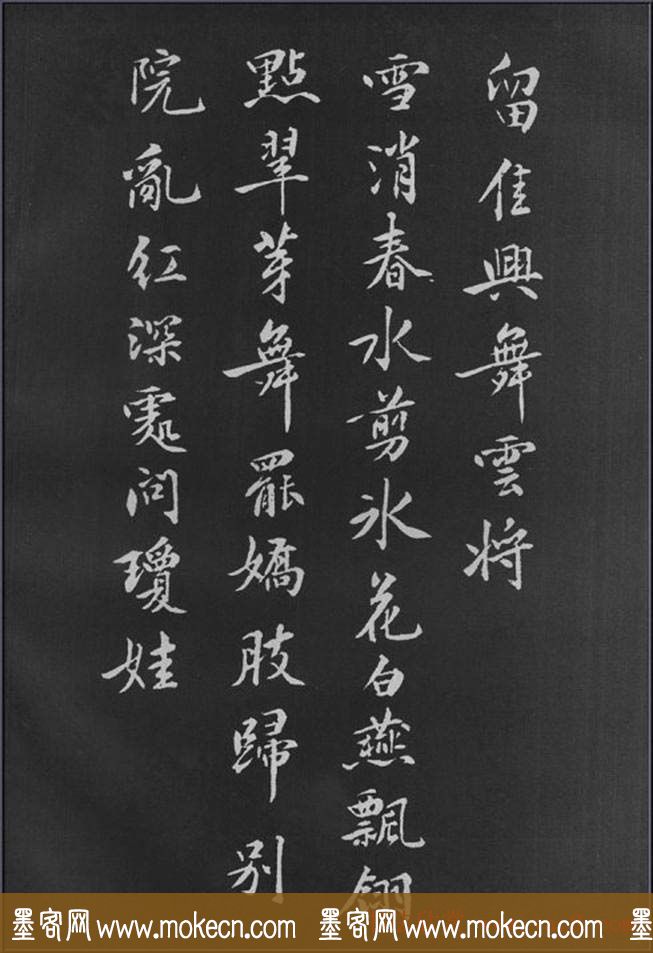 留佳興舞雲将
雪消春水剪氷花白燕飄
點翠芽舞罷嬌肢歸别
院亂紅深處問瓊娃
墨客网 www.mokecn.com 墨客网 www.mokecn.com 墨客网